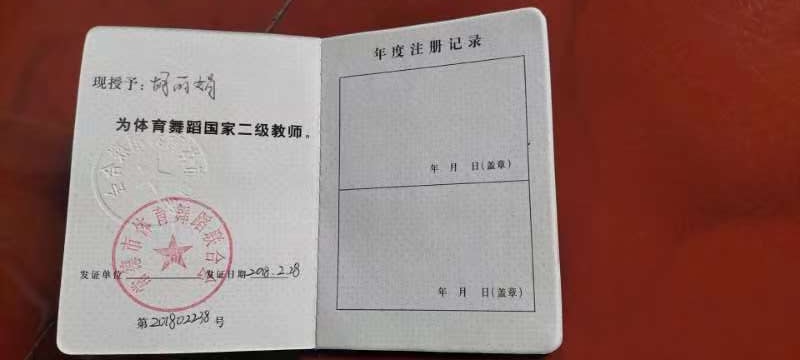 现授予：胡丽娟
为体育舞蹈国家二级教师。
常德市体育舞蹈联合会
发证单位 发证日期 2018.2.28
第201802238号
年度注册记录
年 月 日(盖章)
年 月 日(盖章)